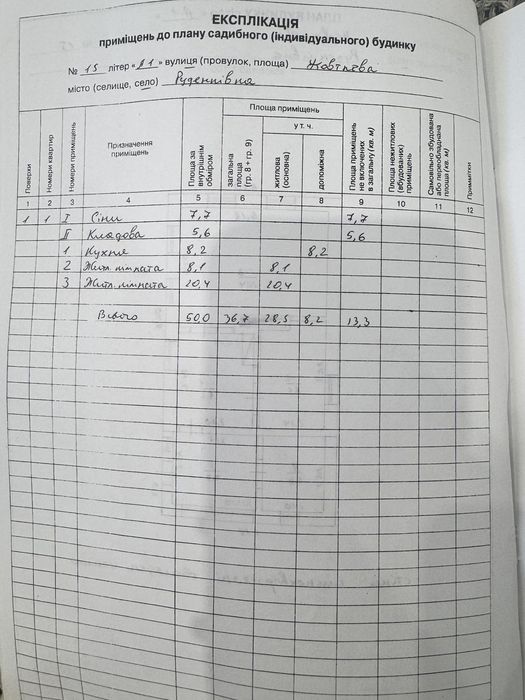 ЕКСПЛІКАЦІЯ
приміщень до плану садибного (індивідуального) будинку
№ 15 літер «А1» вулиця (провулок, площа) Жовтнева
місто (селище, село) Руденківка
Поверхи
Номери квартир
Номери приміщень
Призначення приміщень
Площа за внутрішнім обміром
Площа приміщень
загальна площа (гр. 8 + гр. 9)
у т. ч.
житлова (основна)
допоміжна
Площа приміщень не включених в загальну (кв. м)
Площа нежитлових (вбудованих) приміщень
Самовільно збудована або переобладнана площа (кв. м)
Примітки
1 2 3 4 5 6 7 8 9 10 11 12
1 1 I Сіни 7,7 7,7
II Кладова 5,6 5,6
1 Кухня 8,2 8,2
2 Житл. кімната 8,1 8,1
3 Житл. кімната 20,4 20,4
Всього 50,0 36,7 28,5 8,2 13,3